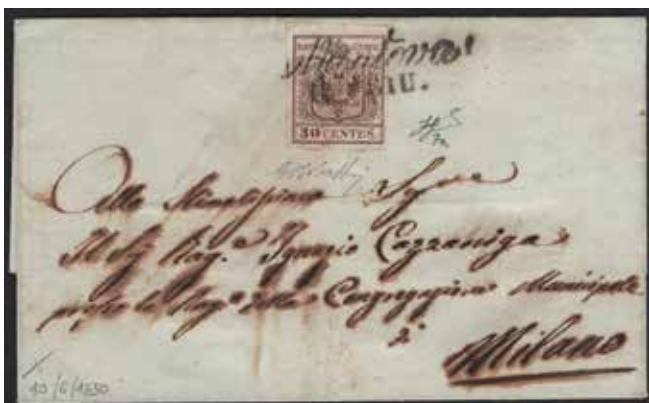 Mantova
GIU.
30 CENTES.
Allo
Il Sig Rag.e Ignazio Cazzaniga
presso la Rag.a della Congregazione Municipale
di
Milano
10/6/1850